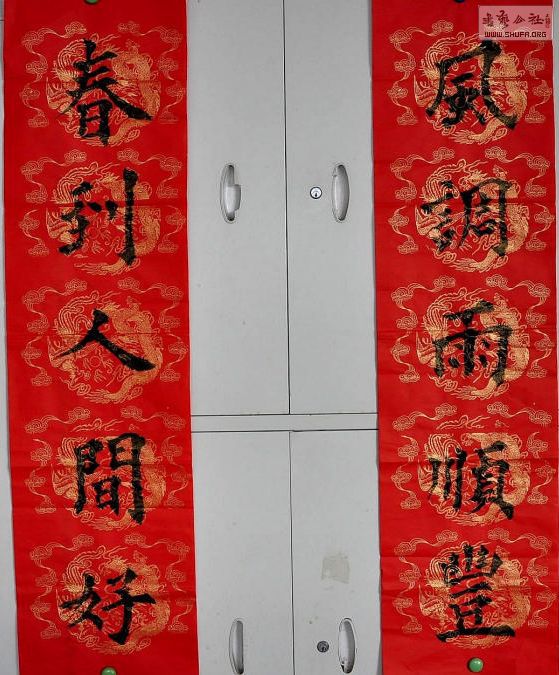 風調雨順豐
春到人間好
書藝公社
WWW.SHUFA.ORG